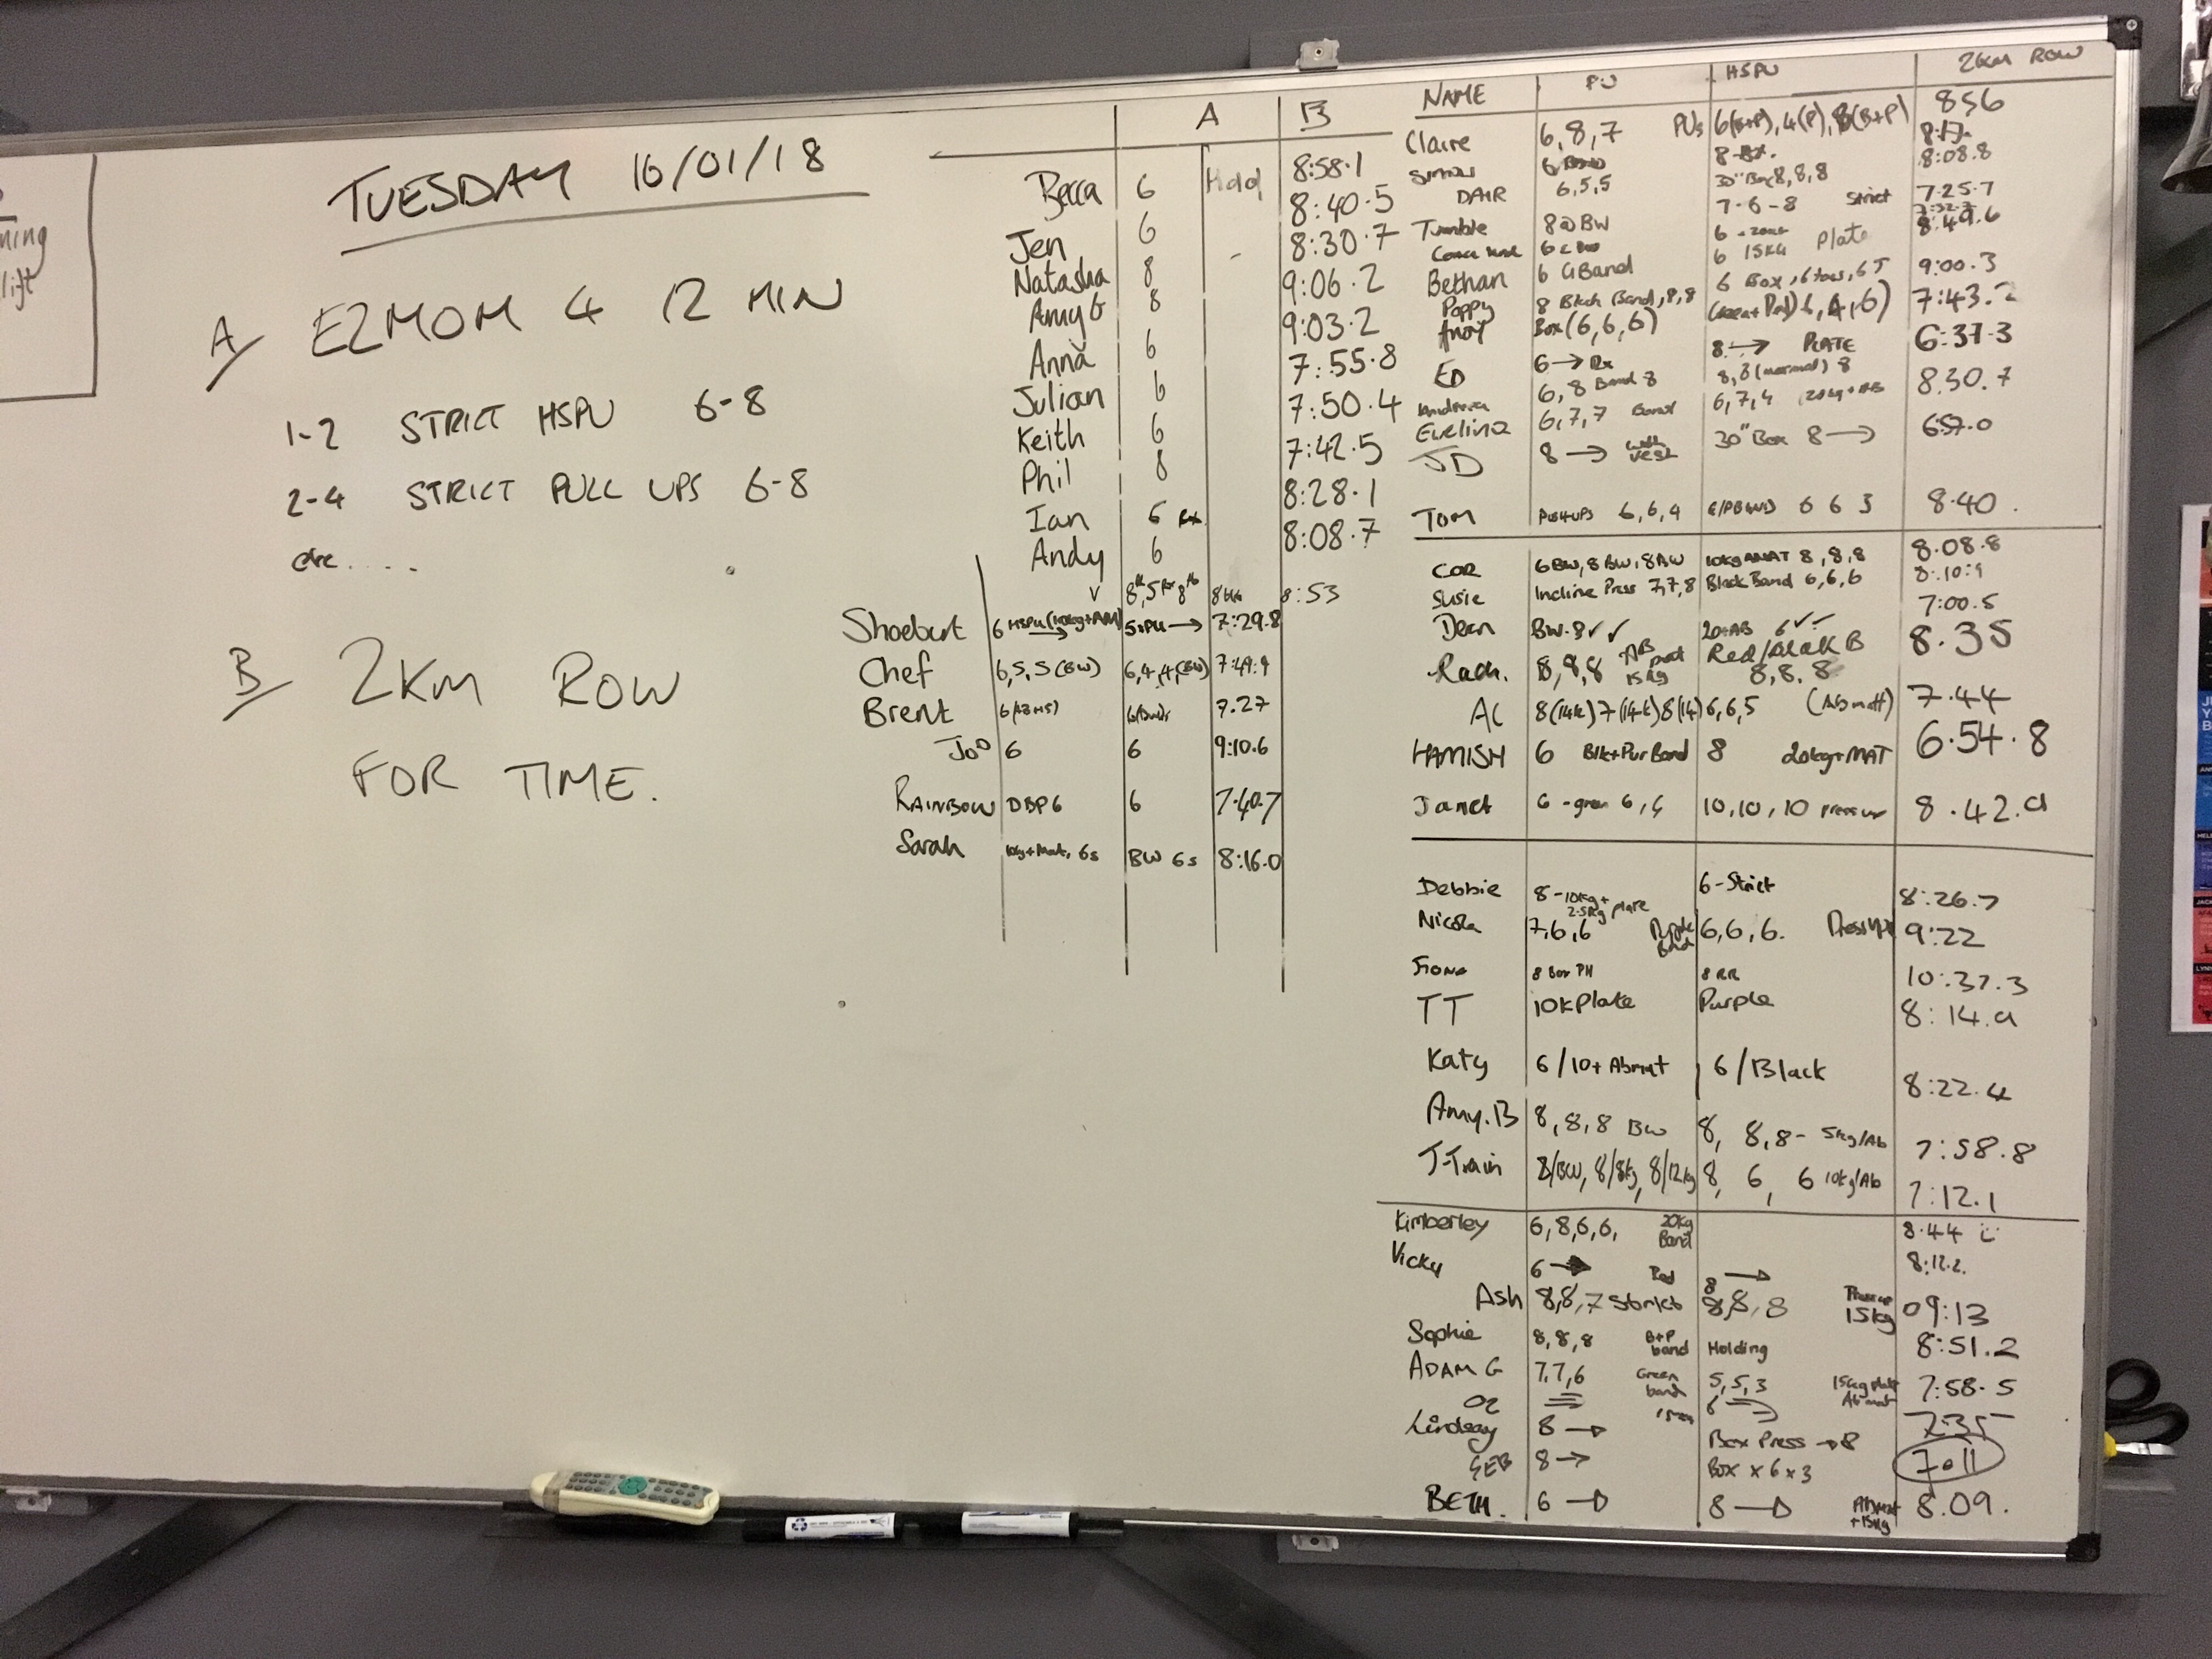 TUESDAY 16/01/18
A/ E2MOM 4 12 MIN
1-2 STRICT HSPU 6-8
2-4 STRICT PULL UPS 6-8
etc....
B/ 2KM ROW
FOR TIME.
A B
Becca 6 Hold 8:58.1
Jen 6 8:40.5
Natasha 8 - 8:30.7
Amy G 8 9:06.2
Anna 6 9:03.2
Julian 6 7:55.8
Keith 6 7:50.4
Phil 8 7:42.5
Ian 6 Rx 8:28.1
Andy 6 8:08.7
8:53
Shoebert 6 HSPU (10kg+AM) 5 7:29.8
Chef 6,5,5 (BW) 6,4,4,(BW) 7:49.9
Brent 6 7.27
JoD 6 6 9:10.6
RAINBOW DBP6 6 7:40.7
Sarah 10kg+Mat, 6s BW 6s 8:16.0
NAME PU HSPU 2KM ROW
Claire 6,8,7 PUs 6(B+P),4(P),8(B+P) 856
6 8
DAIR 6,5,5 30" Box 8,8,8 8:08.8
Tumble 8@BW 7-6-8 Strict 7.25.7
6 6 15KG Plate 8:49.6
Bethan 6 GBand 6 Box, 6
Poppy 8 Black Band,8,8 9:00.3
Andy Box(6,6,6) 7:43.2
ED 6 → Rx 8 → PLATE 6:37.3
Andrea 6,8 Band 8 8,8(normal) 8
Evelina 6,7,7 Band 6,7,4 8.30.7
JD 8 → with vest 30" Box 8 → 6:57.0
TOM PUSHUPS 6,6,4 6 6 3 8.40.
COR 6BW,8BW,8BW 10kg AMAT 8,8,8 8:08.8
Susie Incline Press 7,7,8 Black Band 6,6,6 8:10.9
Dean BW.8 ✓ ✓ 20+AB 6 ✓ ✓ 7:00.5
Rach. 8,8,8 AB mat 15kg Red/Black B 8,8,8 8.35
AC 8(14k) 7(14k) 8(14) 6,6,5 (Abmatt) 7.44
HAMISH 6 Blk+Pur Band 8 20kg+MAT 6.54.8
Janet 6 - green 6,6 10,10,10 press up 8.42.9
Debbie 8-10kg+ 2.5kg plate 6-Strict 8:26.7
Nicola 7,6,6 Purple Band 6,6,6. Press ups 9:22
Fiona 8 Box PH 8 RR 10:37.3
TT 10k Plate Purple 8:14.9
Katy 6/10+Abmat 6/Black 8:22.4
Amy.B 8,8,8 BW 8, 8,8- 5kg/Ab 7:58.8
J-Train 8/BW, 8/8kg, 8/12kg 8, 6, 6 10kg/Ab 7:12.1
Kimberley 6,8,6,6, 20kg Band 8.44
Vicky 6 → Red 8 → 8:12.2.
Ash 8,8,7 Strict 8,8,8 Press up 15kg 09:13
Sophie 8,8,8 B+P band Holding 8:51.2
ADAM G 7,7,6 Green band 5,5,3 15kg plate Abmat 7:58.5
Oz 6 7.35
Lindsay 8 → Box Press → 8
SEB 8 → BOX x 6 x 3 7.11
BETH. 6 → 8 → Abmat +15kg 8.09.